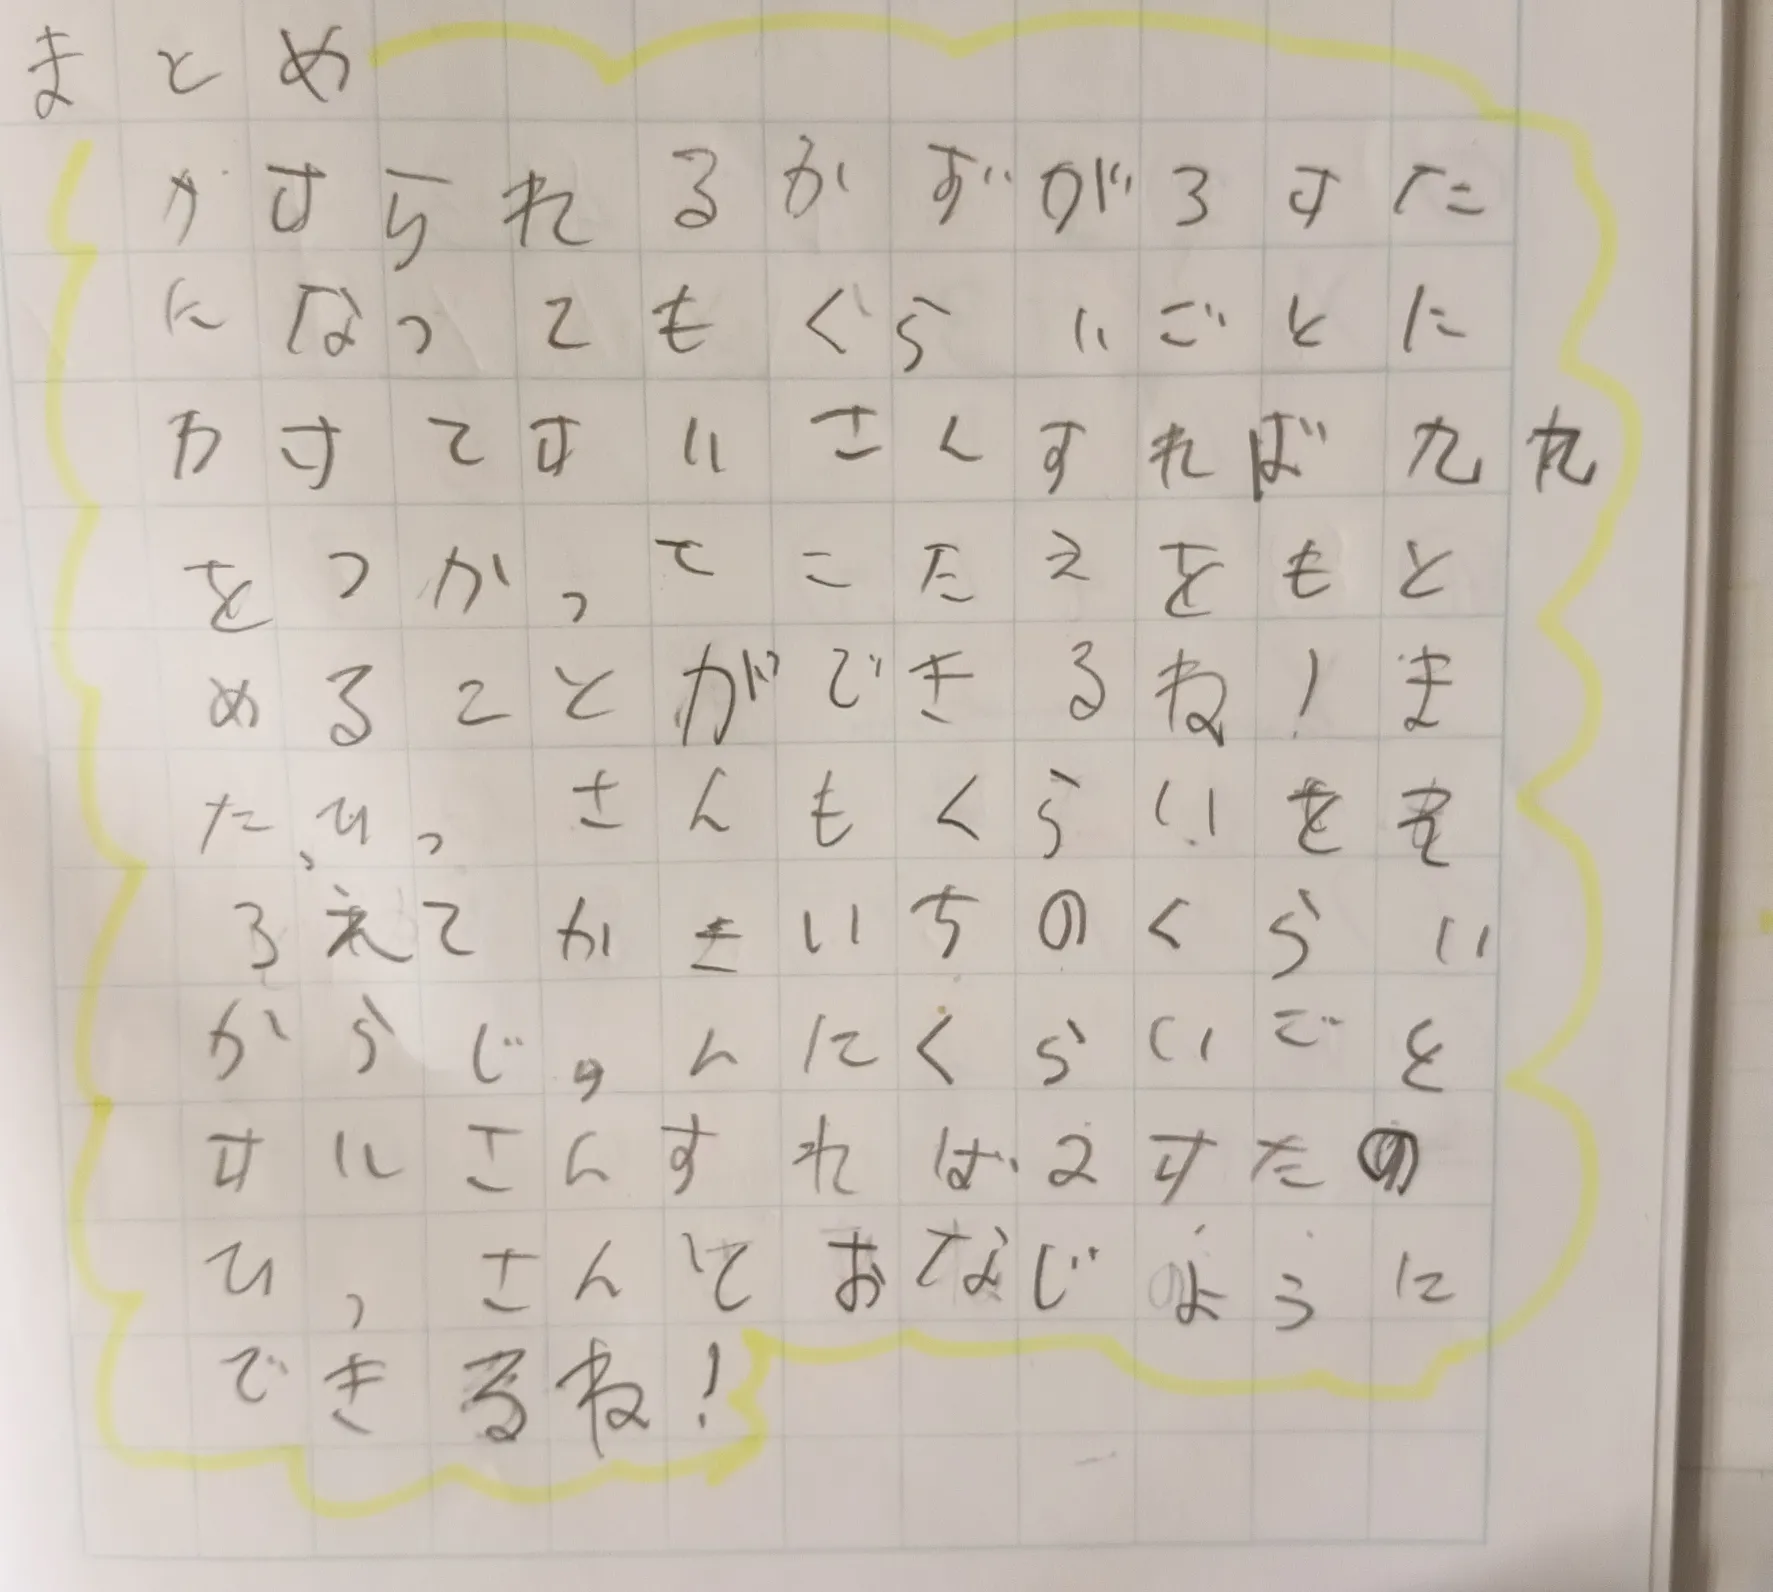 まとめ
かけられるかずが3けた
になってもくらいごとに
わけてけいさんすれば九九
をつかってこたえをもと
めることができるね!ま
た、ひっさんもくらいをそ
ろえてかきいちのくらい
からじゅんにくらいごと
けいさんすれば2けたの
ひっさんとおなじように
できるね!